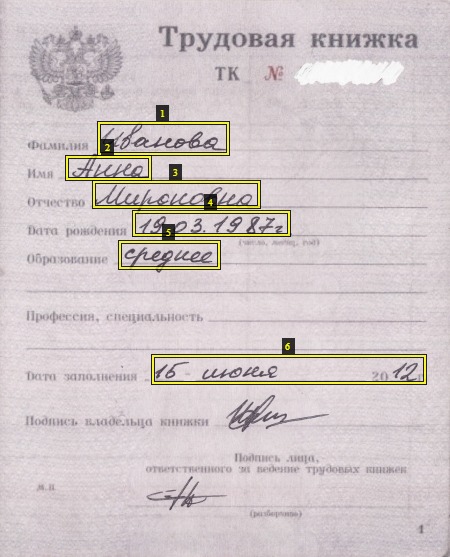 Трудовая книжка
ТК №
Фамилия Иванова
Имя Анна
Отчество Мироновна
Дата рождения 19.03.1987г
(число, месяц, год)
Образование среднее
Профессия, специальность
Дата заполнения 15 - июня 2012 г.
Подпись владельца книжки
Подпись лица,
ответственного за ведение трудовых книжек
М.П.
(разборчиво)
1
1
2
3
4
5
6